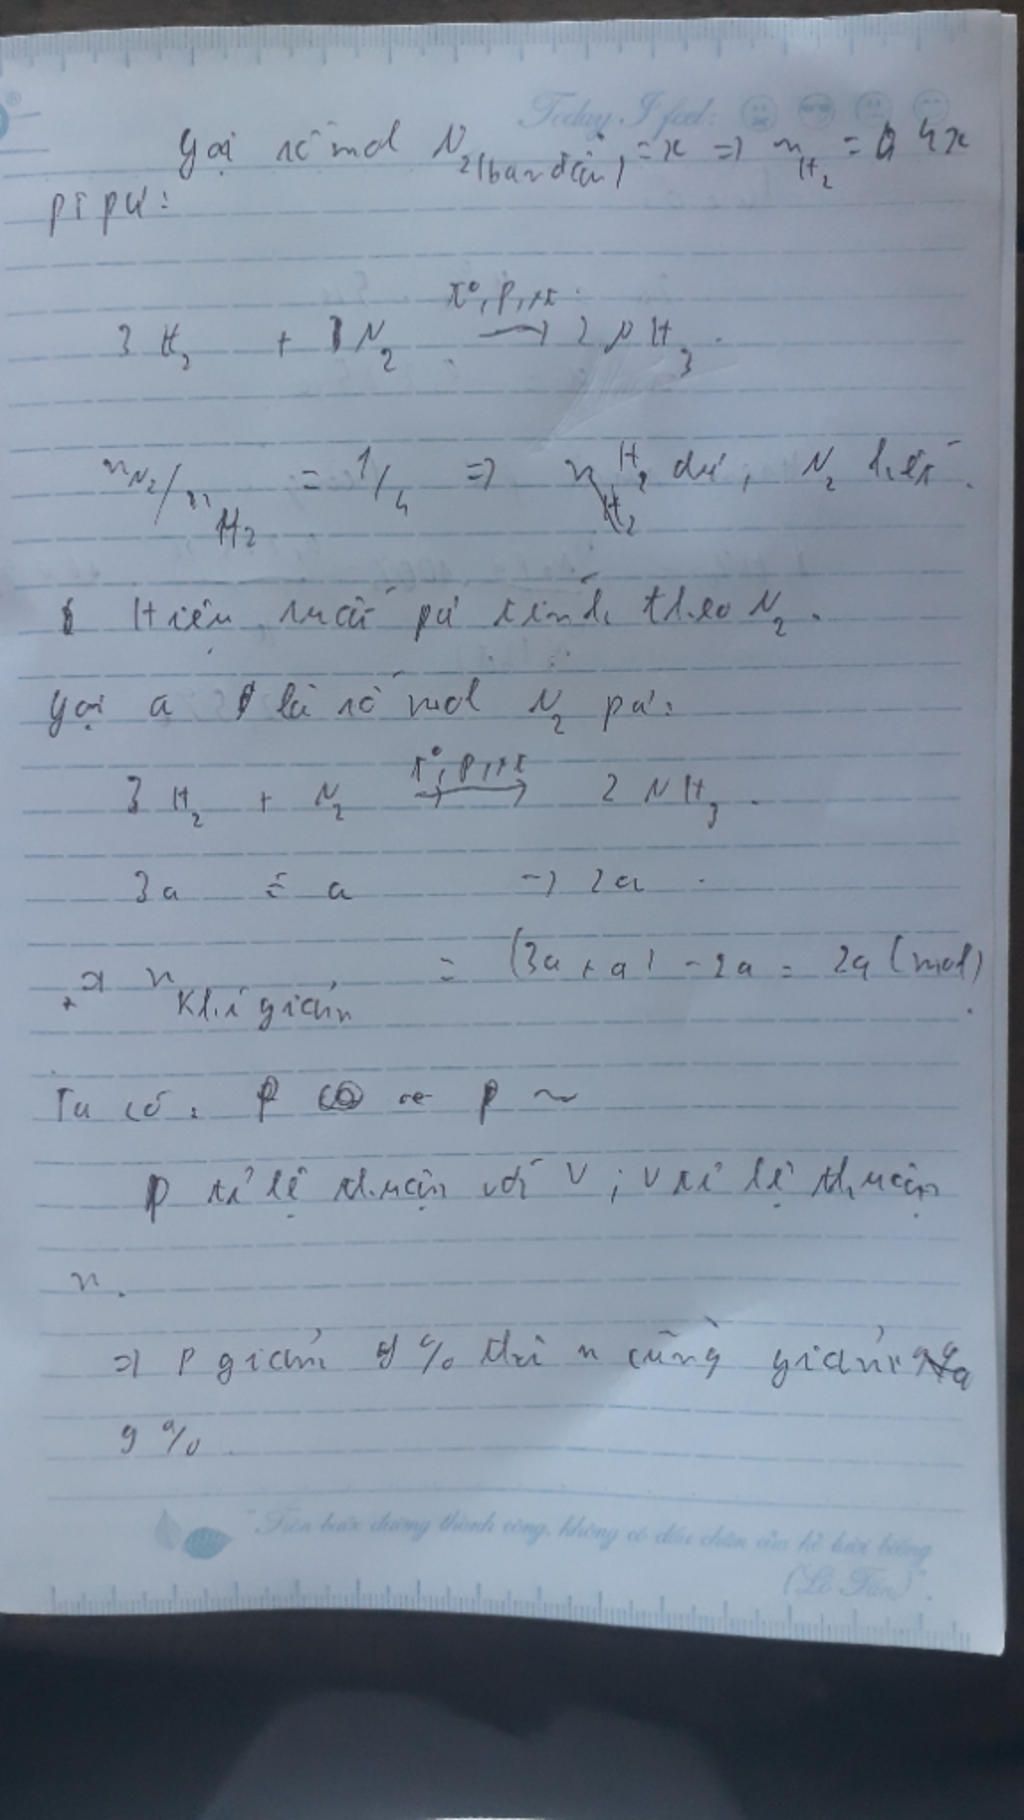 Today I feel:
Gọi số mol N2(ban đầu) = x => nH2 = 4x
pt pư:
t°, p, xt
3 H2 + N2 → 2 NH3.
nN2/nH2 = 1/4 => H2 dư, N2 hết.
Hiệu suất pư tính theo N2.
Gọi a là số mol N2 pư:
t°, p, xt
3 H2 + N2 → 2 NH3.
3a ← a → 2a
=> n khí giảm = (3a + a) - 2a = 2a (mol).
Ta có: p ~
p tỉ lệ thuận với V; V tỉ lệ thuận
n.
=> p giảm 9% thì n cũng giảm
9%.
"Trên bước đường thành công, không có dấu chân của kẻ lười biếng
(Lỗ Tấn)".